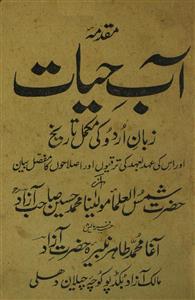 مقدمہ
آب حیات
زبان اردو کی مکمل تاریخ
اور اس کی عہد بعہد کی ترقیوں اور اصلاحوں کا مفصل بیان
حضرت شمس العلما مولینا محمد حسین صاحب آزاد
آغا محمد طاہر نبیرہ حضرت آزاد
مالک آزاد بکڈپو کوچہ چیلان دھلی